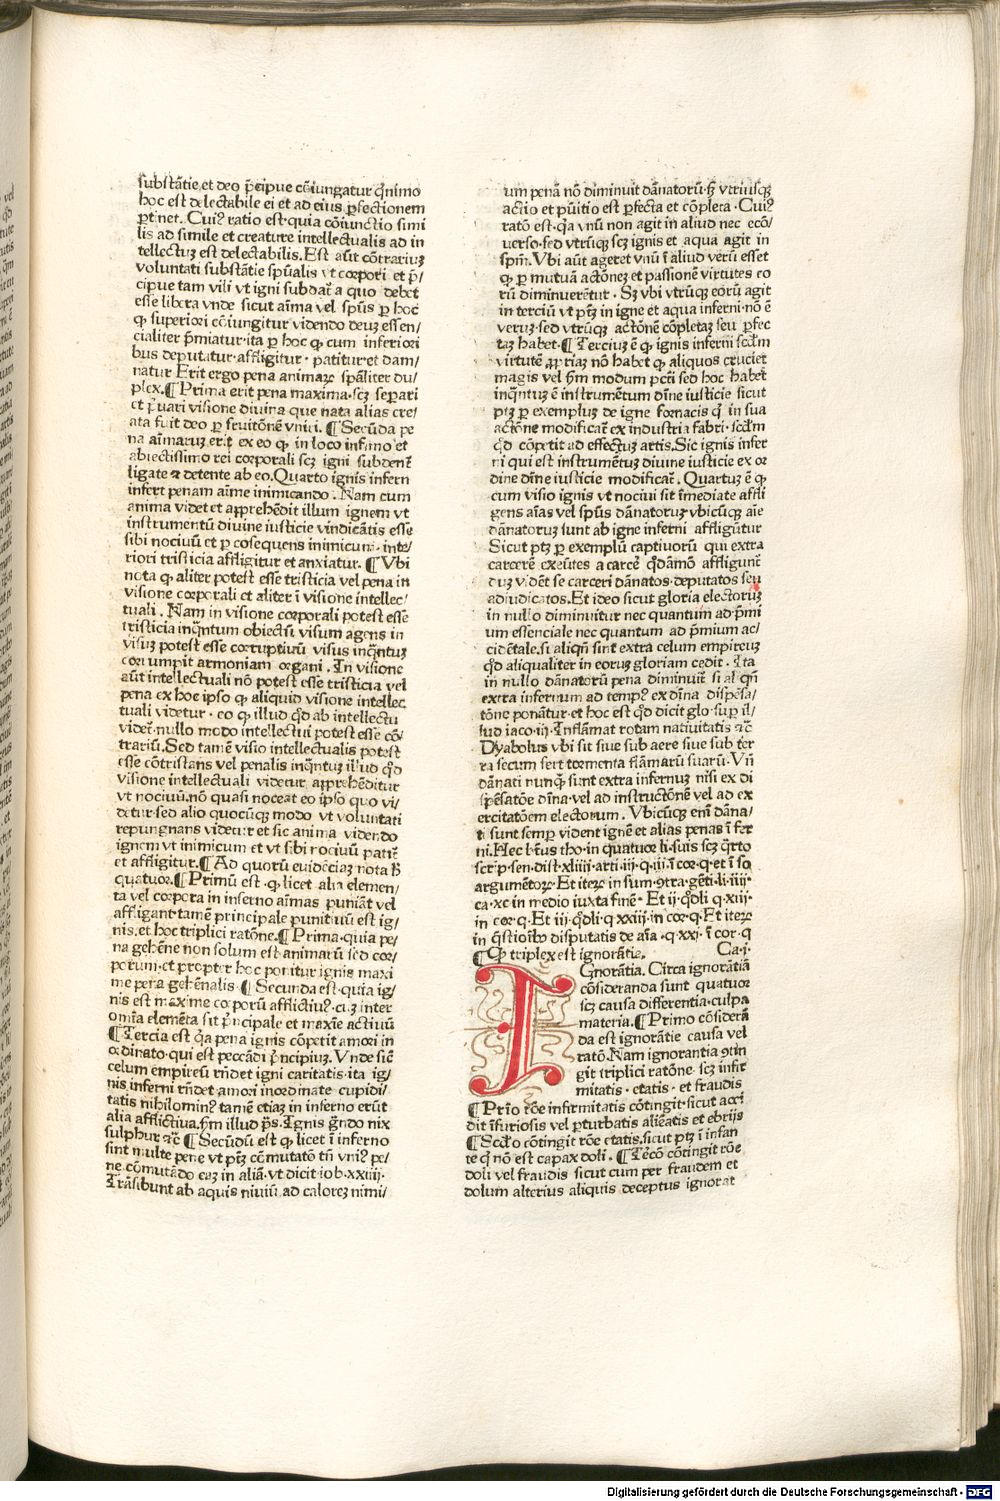 substātie et deo p̄cipue cōiungatur qͫnimo
hoc est delectabile ei et ad eius ꝑfectionem
ꝑtinet. Cuiꝰ ratio est quia cōiunctio simi
lis ad simile et creature intellectualis ad in
tellectuȝ est delectabilis. Est aūt cōtrariuȝ
voluntati substātie spūalis vt corpori et p̄/
cipue tam vili vt igni subdat̄ a quo debet
esse libera vnde sicut aīma vel spūs ꝑ hoc
ꝙ superiori cōiungitur videndo deuȝ essen/
cialiter p̄miatur ita ꝑ hoc ꝙ cum inferiori
bus deputatur affligitur · patitur et dam/
natur Erit ergo pena animaꝝ spāliter du/
plex. ¶ Prima erit pena maxima scȝ separi
et p̄uari visione diuina que nata alias cre/
ata fuit deo ꝑ fruitōnē vniri. ¶ Secūda pe
na aīmaruȝ erit ex eo ꝙ in loco infimo et
abiectissimo rei corporali scȝ igni subdent̄
ligate ⁊ detente ab eo. Quarto ignis infern
infert penam aīme inimicando. Nam cum
anima videt et apprehēdit illum ignem vt
instrumentū diuine iusticie vindicātis esse
sibi nociuū et ꝑ cosequens inimicum · inte/
riori tristicia affligitur et anxiatur. ¶ Vbi
nota ꝙ aliter potest esse tristicia vel pena in
visione corporali et aliter ī visione intellec/
tuali. Nam in visione corporali potest esse
tristicia inqͫntum obiectū visum agens in
visuȝ potest esse corruptiuū visus inqͫntuȝ
corrumpit armoniam organi. In visione
aūt intellectuali nō potest esse tristicia vel
pena ex hoc ipso ꝙ aliquid visione intellec
tuali videtur · eo ꝙ illud qd̄ ab intellectu
videt̄ nullo modo intellectui potest esse cō/
trariū. Sed tamē visio intellectualis potest
esse cōtristans vel penalis inqͫntuȝ illud qd̄
visione intellectuali videtur apprehēditur
vt nociuū. nō quasi noceat eo ipso quo vi/
detur sed alio quocūqȝ modo vt voluntati
repungnans videtur et sic anima videndo
ignem vt inimicum et vt sibi nociuū patit̄
et affligitur. ¶ Ad quorū euidēciaȝ nota h̄
quatuor. ¶ Primū est · ꝙ licet alia elemen/
ta vel corpora in inferno aīmas puniāt vel
affligant tamē principale punitiuū est ig/
nis. et hoc triplici ratōne. ¶ Prima · quia pe/
na gehēne non solum est animarū sed cor/
porum et propter hoc ponitur ignis maxi
me pena gehēnalis · ¶ Secunda est · quia ig/
nis est maxime corporū afflictiuꝰ · cuȝ inter
omīa elemēta sit p̄ncipale et maxīe actiuū
¶ Tercia est qͣa pena ignis cōpetit amori in
ordinato · qui est peccādi p̄ncipiuȝ. Vnde sicū
celum empireū rn̄det igni caritatis · ita ig/
nis inferni rn̄det amori inordinate cupidi/
tatis nihilominꝰ tamē etiaȝ in inferno erūt
alia afflictiua. ẜm illud p̄s. Ignis gͣndo nix
sulphur ⁊c̄ ¶ Secūdū est ꝙ licet ī inferno
sint multe pene vt ptȝ cōmutatō tn̄ vniꝰ pe/
ne cōmutādo eaȝ in aliā. vt dicit iob · xxiiij ·
Trāsibunt ab aquis niuiū ad caloreȝ nimi/
um penā nō diminuit dānatorū · ẜȝ vtriusqȝ
actiio et pūitio est ꝑfecta et cōpleta · Cuiꝰ
ratō est · qͣa vnū non agit in aliud nec ecō/
uerso · sed vtrūqȝ scȝ ignis et aqua agit in
spm̄. Vbi aūt ageret vnū ī aliud verū esset
ꝙ ꝑ mutuā actōneȝ et passionē virtutes eo
rū diminuerētur · Sȝ vbi vtrūqȝ eorū agit
in terciū vt ptȝ in igne et aqua inferni · nō ē
veruȝ · sed vtrūqȝ actōnē cōpletaȝ seu ꝑfec
taȝ habet · ¶ Terciuȝ ē ꝙ ignis inferni scd̄m
virtutē ꝓpriaȝ nō habet ꝙ aliquos cruciet
magis vel ẜm modum pcc̄ti sed hoc habet
inqͫntuȝ ē instrumētum dīne iusticie sicut
ptȝ ꝑ exempluȝ de igne fornacis qͥ in sua
actōne modificat̄ ex industria fabri · scd̄m
qd̄ cōpetit ad effectuȝ artis. Sic ignis infer
ni qui est instrumētuȝ diuine iusticie ex or
dine dīne iusticie modificat̄. Quartuȝ ē ꝙ
cum visio ignis vt nociui sit īmediate affli
gens aīas vel spūs dānatoruȝ · vbicūqȝ aīe
dānatoruȝ sunt ab igne inferni affligūtur
Sicut ptȝ ꝑ exemplū captiuorū qui extra
carcerē exeūtes a carcē qd̄āmō affligunt̄
duȝ vidēt se carceri dānatos · deputatos seu
adiudicatos. Et ideo sicut gloria electoruȝ
in nullo diminuitur nec quantum ad p̄mi
um essēnciale nec quantum ad p̄mium ac/
cidētale. si aliqn̄ sint extra celum empireuȝ
qd̄ aliqualiter in eoruȝ gloriam cedit · Ita
in nullo dānatorū pena diminuit̄ si al qn̄
extra infernum ad tempꝰ ex dīna dispēsa/
tōne ponātur · et hoc est qd̄ dicit glo · suꝑ il/
lud iaco · iij · Inflāmat rotam natiuitatis ⁊c̄
Dyabolus vbi sit siue sub aere siue sub ter
ra secum sert tormenta flāmarū suarū · Vn̄
dānati nunqͣ sunt extra infernuȝ nisi ex di
spēsatōe dīna · vel ad instructōnē vel ad ex
ercitatōem electorum. Vbicūqȝ enī dāna/
ti sunt semꝑ vident ignē et alias penas ī fer
ni. Hec bt̄us tho · in quatuor li · suis scȝ qͣrto
scrip · sen · dist · xliiij · arti · iij · q · iij · ī cor · q · et ī so
argumētoꝝ · Et iteꝝ in sum · ꝯtra gēti · li · iiij ·
ca · xc in medio iuxta finē · Et ij · qd̄li q · xiij ·
in cor · q · Et iij · qd̄li · q xxiij · in cor · q · Et iteꝝ
in q̄stionib⁹ disputatis de aīa · q · xxj · ī cor · q
¶ Ꝙ triplex est ignorātie. Ca · j ·
IGnorātia. Circa ignorātiā
cōsideranda sunt quatuor
scȝ causa differentia · culpa
materia. ¶ Primo cōsiderā
da est ignorātie causa vel
ratō. Nam ignorantia ꝯtin
git triplici ratōne · scȝ infir
mitatis · etatis · et fraudis
¶ Prīo rōe infirmitatis cōtingit · sicut acci
dit ī furiosis vel ꝑturbatis aliēatis et ebriis
¶ Scd̄o cōtingit rōe etatis. sicut ptȝ ī infan
te qͥ nō est capax doli. ¶ Tecō cōtingit rōe
doli vel fraudis sicut cum per fraudem et
dolum alterius aliquis deceptus ignorat
Digitalisierung gefördert durch die Deutsche Forschungsgemeinschaft - DFG